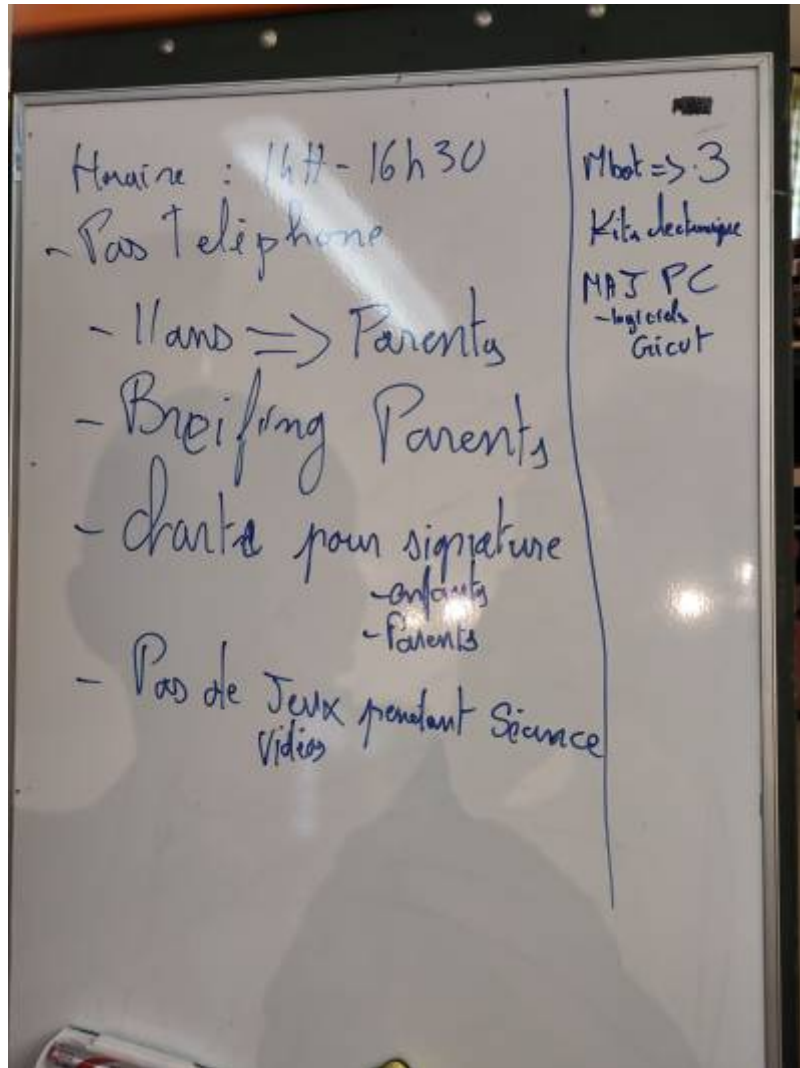 Horaire : 14H - 16h30
- Pas Teléphone
- 11ans => Parents
- Breifing Parents
- charte pour signature
- enfants
- Parents
- Pas de Jeux pendant Séance
Vidéos
Mbot => 3
Kits electronique
MAJ PC
- logiciels